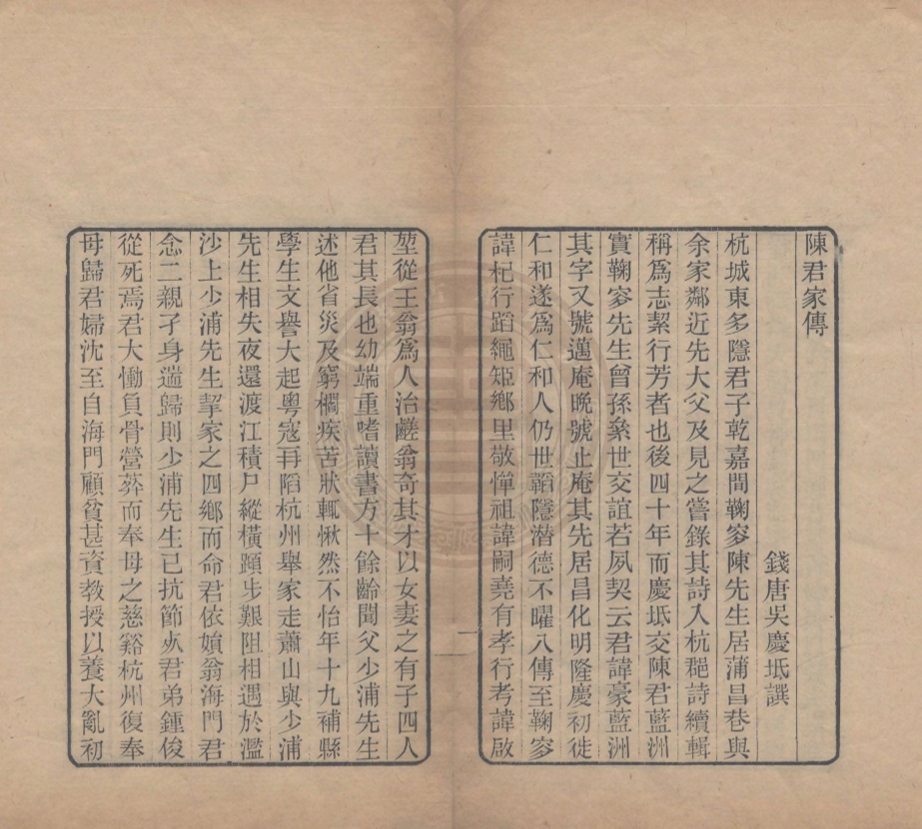 陳君家傳
錢唐吳慶坻譔
杭城東多隱君子乾嘉間鞠穸陳先生居蒲昌巷與
余家鄰近先大父及見之嘗錄其詩入杭郡詩續輯
稱爲志絜行芳者也後四十年而慶坻交陳君藍洲
實鞠穸先生曾孫絫世交誼若夙契云君諱豪藍洲
其字又號邁庵晚號止庵其先居昌化明隆慶初徙
仁和遂爲仁和人仍世韜隱潛德不曜八傳至鞠穸
諱杞行蹈繩矩鄉里敬憚祖諱嗣堯有孝行考諱啟
堃從王翁爲人治鹺翁奇其才以女妻之有子四人
君其長也幼端重嗜讀書方十餘齡聞父少浦先生
述他省災及窮櫩疾苦狀輒愀然不怡年十九補縣
學生文譽大起粵寇再陷杭州舉家走蕭山與少浦
先生相失夜還渡江積尸縱橫踁步艱阻相遇於濫
沙上少浦先生挈家之四鄉而命君依媍翁海門君
念二親孑身遄歸則少浦先生已抗節死君弟鍾俊
從死焉君大慟負骨營葬而奉母之慈谿杭州復奉
母歸君婦沈至自海門顧貧甚資教授以養大亂初